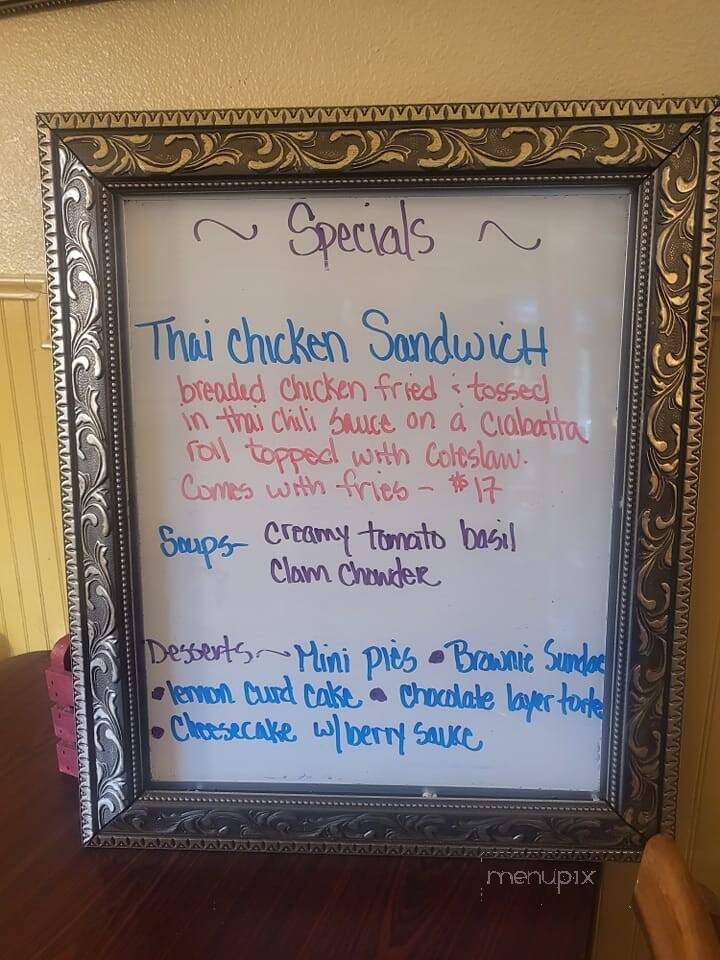 ~ Specials ~
Thai Chicken Sandwich
breaded chicken fried & tossed
in thai chili sauce on a Ciabatta
roll topped with Coleslaw.
Comes with fries - $17
Soups- Creamy tomato basil
Clam Chowder
Desserts ~ Mini pies • Brownie Sundae
• lemon curd cake • chocolate layer torte
• Cheesecake w/ berry sauce
menupix